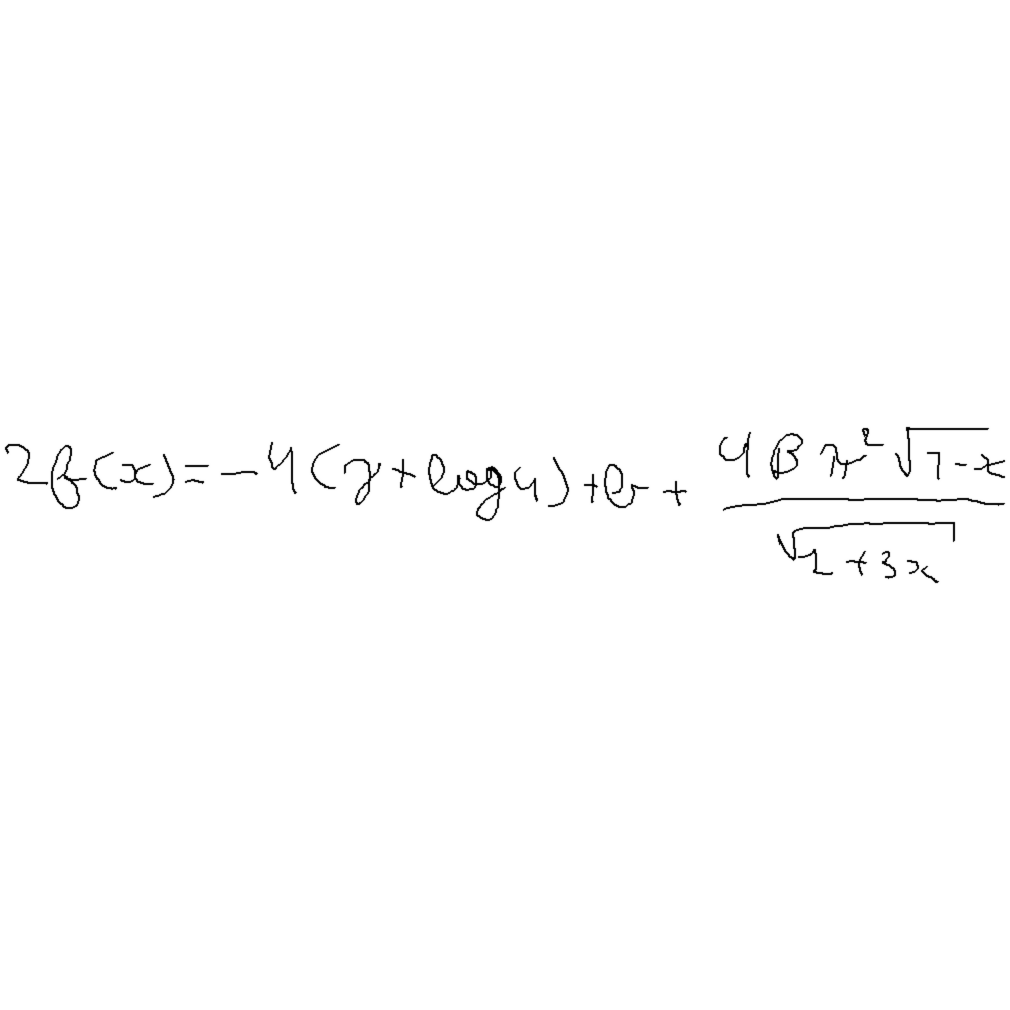 2f(x) = -4(γ + log 4) + b + (4Bπ² √(7-x)) / √(2+3x)